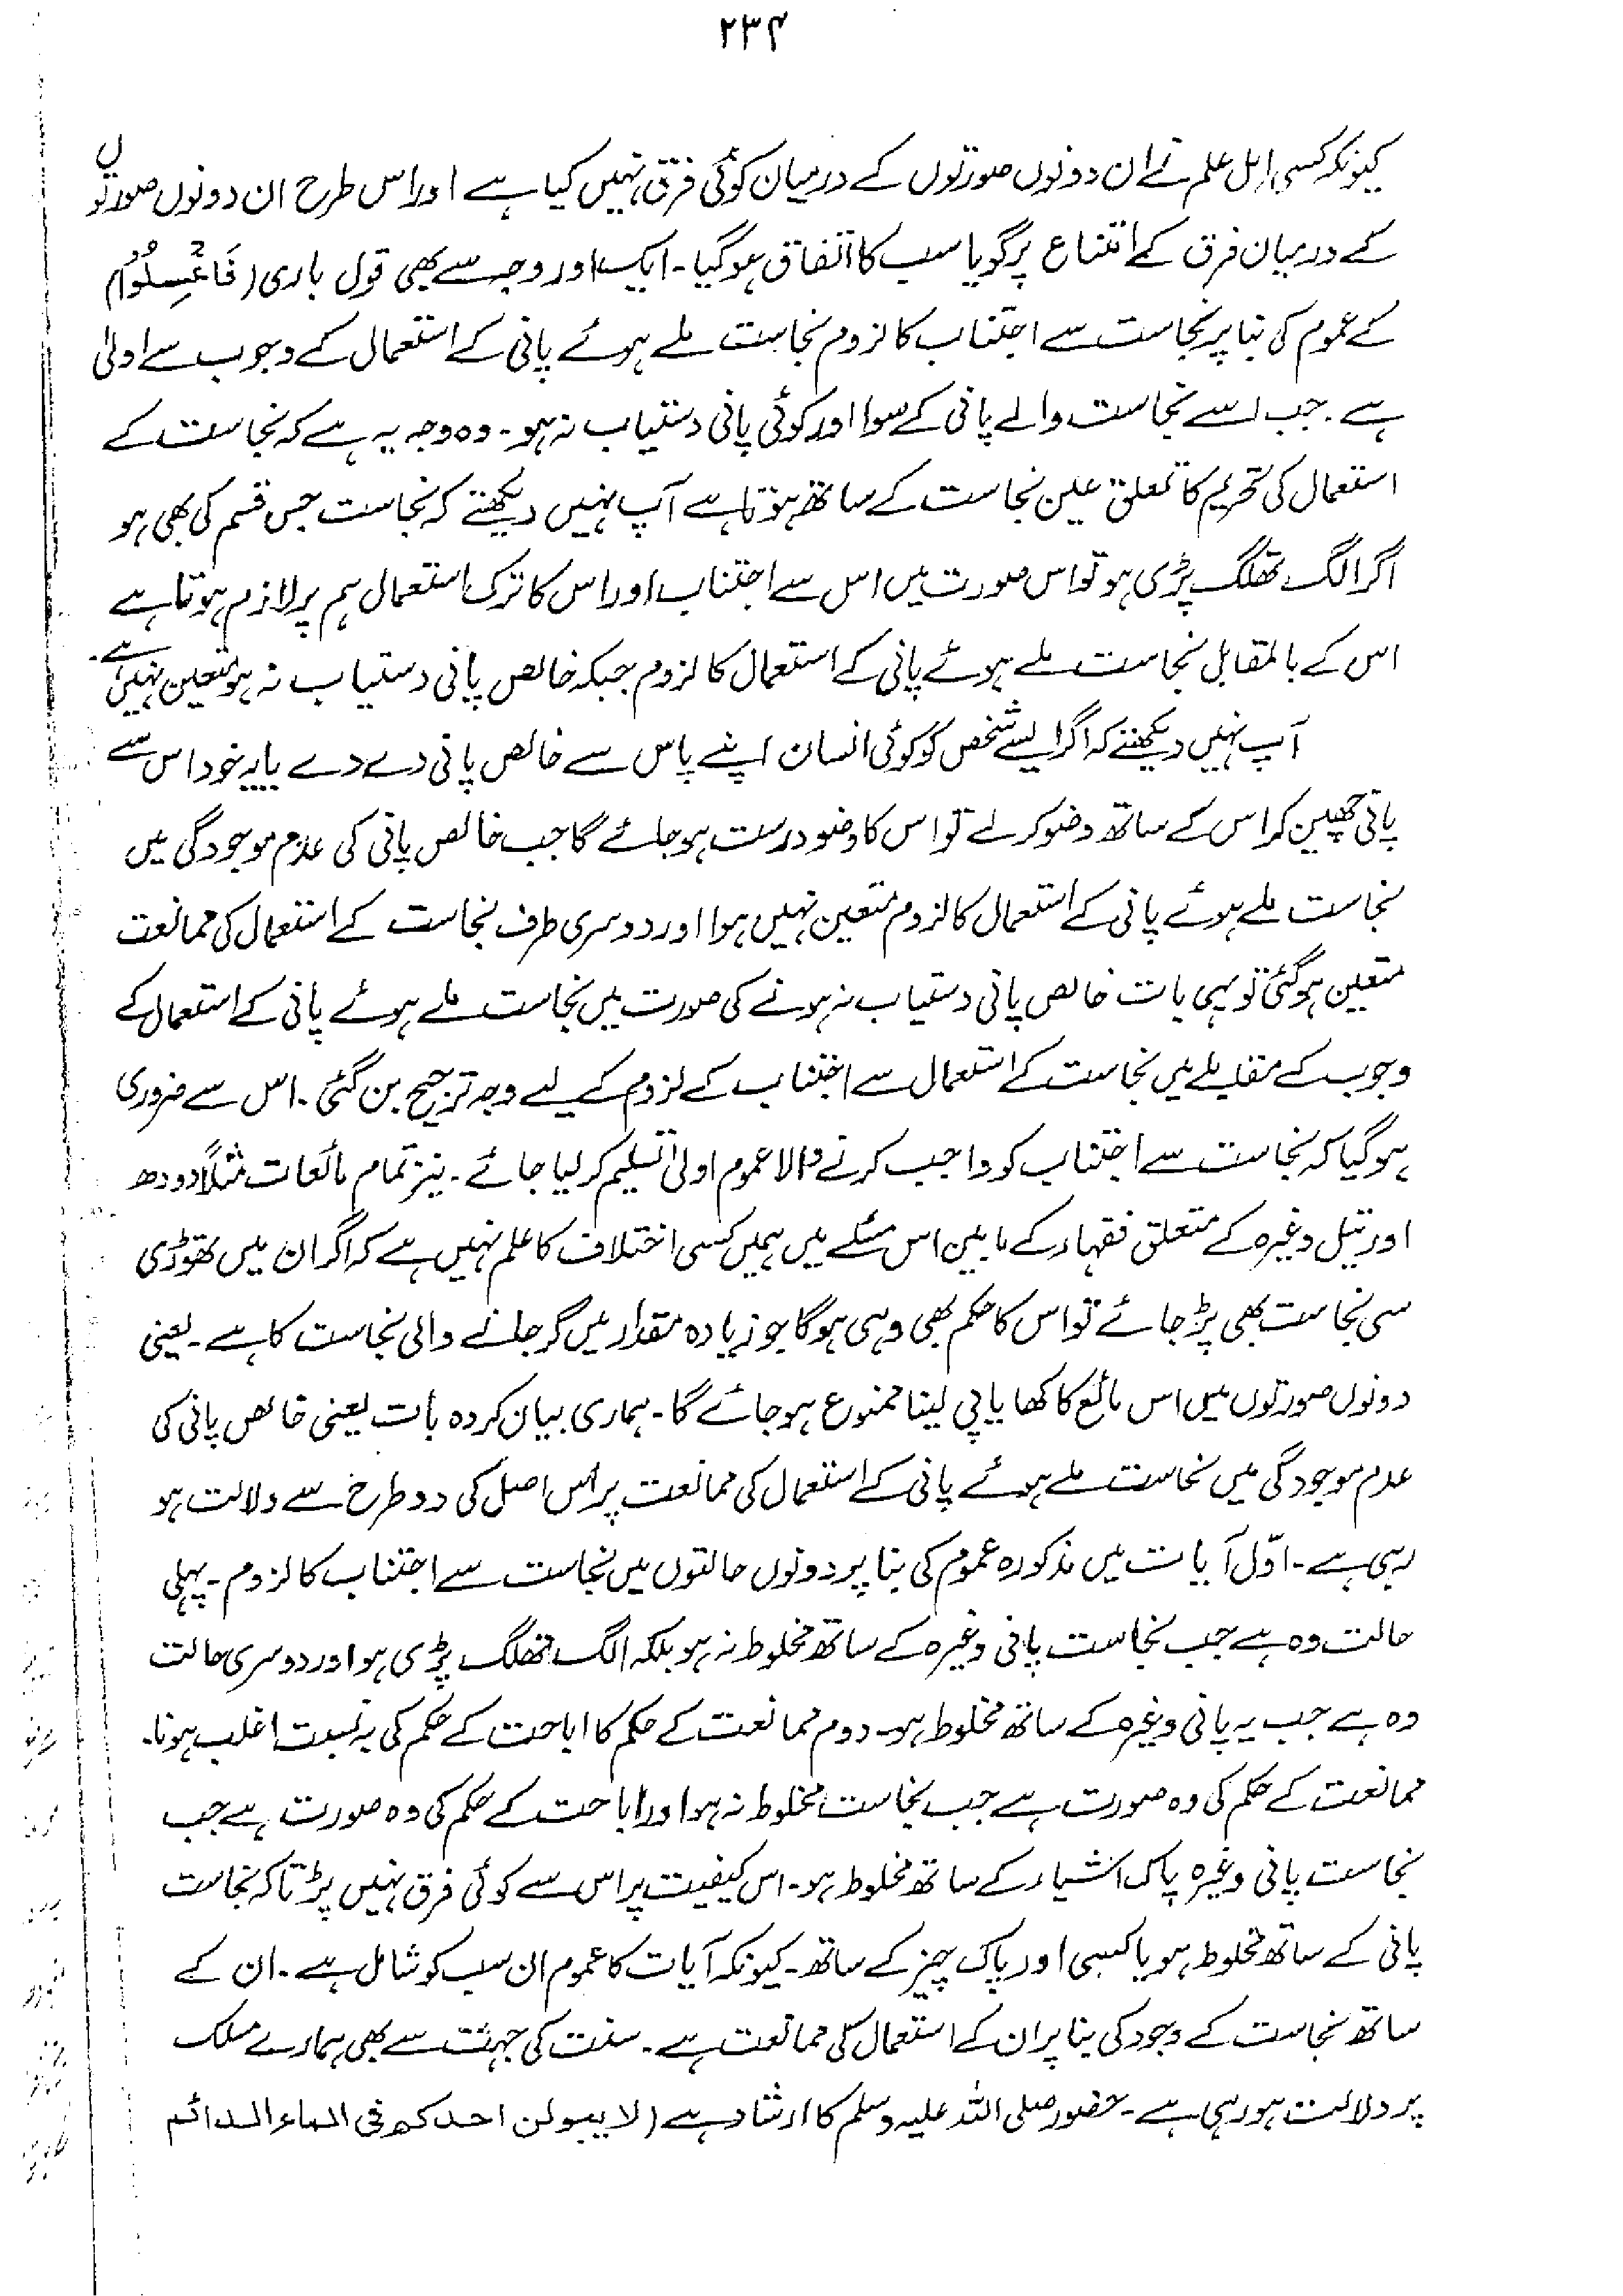 ۲۳۴
کیونکہ کسی اہل علم نے ان دونوں صورتوں کے درمیان کوئی فرق نہیں کیا ہے اور اس طرح ان دونوں صورتوں
کے درمیان فرق کے امتناع پر گویا سب کا اتفاق ہوگیا۔ ایک اور وجہ سے بھی قول باری (فَاغْسِلُوْا)
کے عموم کی بنا پر نجاست سے اجتناب کا لزوم نجاست ملے ہوئے پانی کے استعمال کے وجوب سے اولیٰ
ہے۔ جب اسے نجاست والے پانی کے سوا اور کوئی پانی دستیاب نہ ہو۔ وہ وجہ یہ ہے کہ نجاست کے
استعمال کی تحریم کا تعلق عین نجاست کے ساتھ ہوتا ہے آپ نہیں دیکھتے کہ نجاست جس قسم کی بھی ہو
اگر الگ تھلگ پڑی ہو تو اس صورت میں اس سے اجتناب اور اس کا ترک استعمال ہم پر لازم ہوتا ہے
اس کے بالمقابل نجاست ملے ہوئے پانی کے استعمال کا لزوم جبکہ خالص پانی دستیاب نہ ہو متعین نہیں ہے۔
آپ نہیں دیکھتے کہ اگر ایسے شخص کو کوئی انسان اپنے پاس سے خالص پانی دے دے یا یہ خود اس سے
پانی چھین کر اس کے ساتھ وضو کر لے تو اس کا وضو درست ہو جائے گا جب خالص پانی کی عدم موجودگی میں
نجاست ملے ہوئے پانی کے استعمال کا لزوم متعین نہیں ہوا اور دوسری طرف نجاست کے استعمال کی ممانعت
متعین ہو گئی تو یہی بات خالص پانی دستیاب نہ ہونے کی صورت میں نجاست ملے ہوئے پانی کے استعمال کے
وجوب کے مقابلے میں نجاست کے استعمال سے اجتناب کے لزوم کے لیے وجہ ترجیح بن گئی۔ اس سے ضروری
ہو گیا کہ نجاست سے اجتناب کو واجب کرنے والا عموم اولیٰ تسلیم کر لیا جائے۔ نیز تمام مائعات مثلاً دودھ
اور تیل وغیرہ کے متعلق فقہاء کے مابین اس مسئلے میں ہمیں کسی اختلاف کا علم نہیں ہے کہ اگر ان میں تھوڑی
سی نجاست بھی پڑ جائے تو اس کا حکم بھی وہی ہوگا جو زیادہ مقدار میں گر جانے والی نجاست کا ہے۔ یعنی
دونوں صورتوں میں اس مائع کا کھا یا پی لینا ممنوع ہو جائے گا۔ ہماری بیان کردہ بات یعنی خالص پانی کی
عدم موجودگی میں نجاست ملے ہوئے پانی کے استعمال کی ممانعت پر اس اصل کی دو طرح سے دلالت ہو
رہی ہے۔ اوّل آیات میں مذکورہ عموم کی بنا پر دونوں حالتوں میں نجاست سے اجتناب کا لزوم۔ پہلی
حالت وہ ہے جب نجاست پانی وغیرہ کے ساتھ مخلوط نہ ہو بلکہ الگ تھلگ پڑی ہو اور دوسری حالت
وہ ہے جب یہ پانی وغیرہ کے ساتھ مخلوط ہو۔ دوم ممانعت کے حکم کا اباحت کے حکم کی بہ نسبت اغلب ہونا۔
ممانعت کے حکم کی وہ صورت ہے جب نجاست مخلوط نہ ہو اور اباحت کے حکم کی وہ صورت ہے جب
نجاست پانی وغیرہ پاک اشیاء کے ساتھ مخلوط ہو۔ اس کیفیت پر اس سے کوئی فرق نہیں پڑتا کہ نجاست
پانی کے ساتھ مخلوط ہو یا کسی اور پاک چیز کے ساتھ۔ کیونکہ آیات کا عموم ان سب کو شامل ہے۔ ان کے
ساتھ نجاست کے وجود کی بنا پر ان کے استعمال کی ممانعت ہے۔ سنت کی جہت سے بھی ہمارے مسلک
پر دلالت ہو رہی ہے۔ حضور صلی اللہ علیہ وسلم کا ارشاد ہے (لا یبولن احدکم فی الماء الدائم